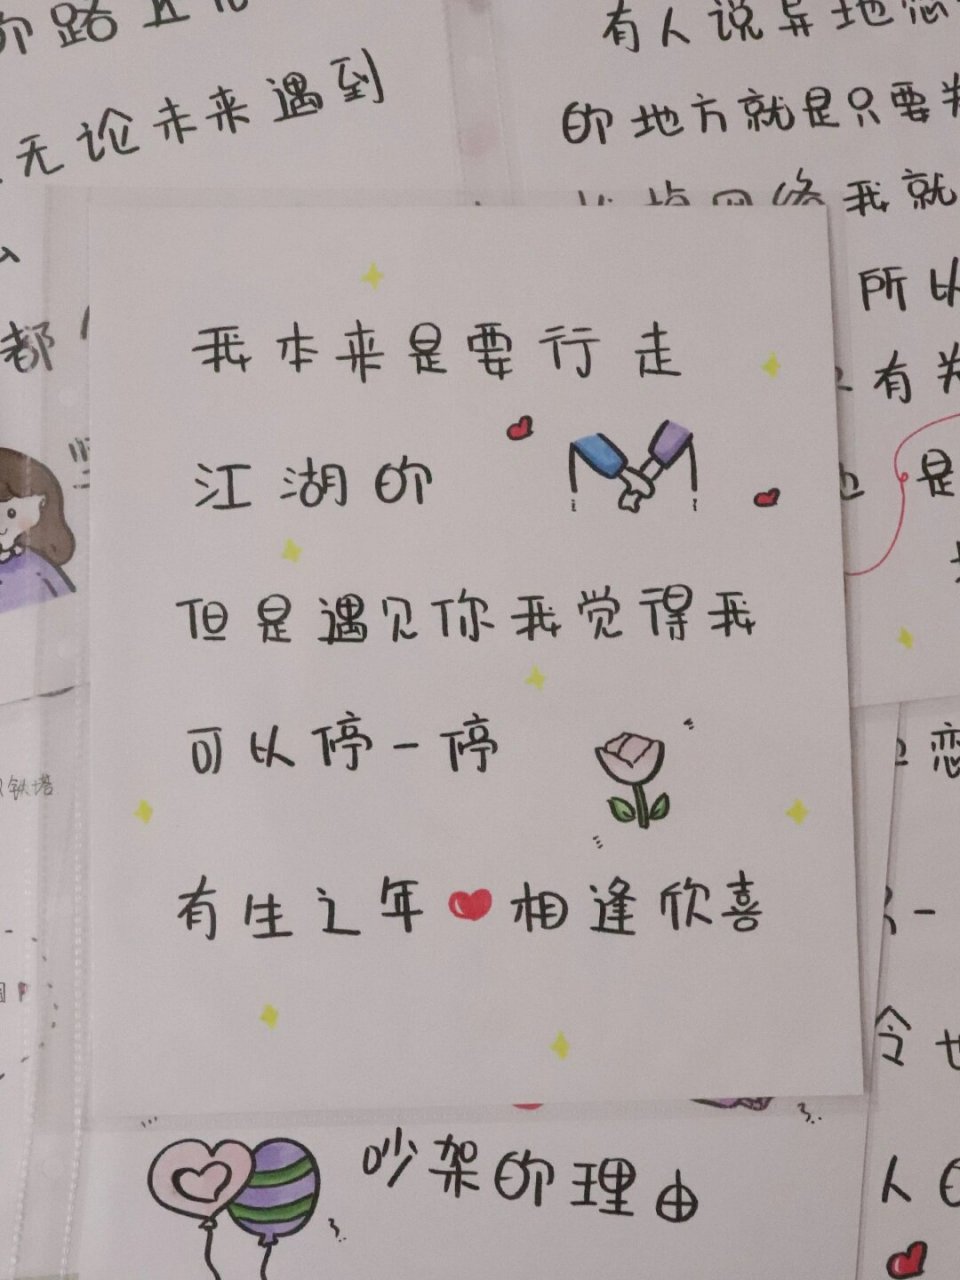 无论未来遇到
都
有人说异地恋
的地方就是只要
网络我就
所以
有
是
我本来是要行走
江湖的
但是遇见你我觉得我
可以停一停
有生之年相逢欣喜
铁塔
恋
一
令
人
吵架的理由